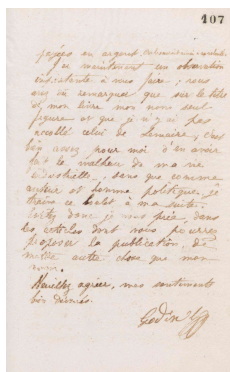 107
payées en argent,
J'ai maintenant une observation
importante à vous faire; vous
avez dû remarquer que sur le titre
de mon livre mon nom seul
figure et que je n'y ai pas
accollé celui de Lemaire; c'est
bien assez pour moi d'en avoir
fait le malheur de ma vie
industrielle, sans que comme
auteur et homme politique je
traîne ce boulet à ma suite.
donc je vous prie, dans
les articles dont vous pourrez
proposer la publication, de
mettre autre chose que mon
nom.
Veuillez agréer, mes sentiments
bien dévoués.
Godin